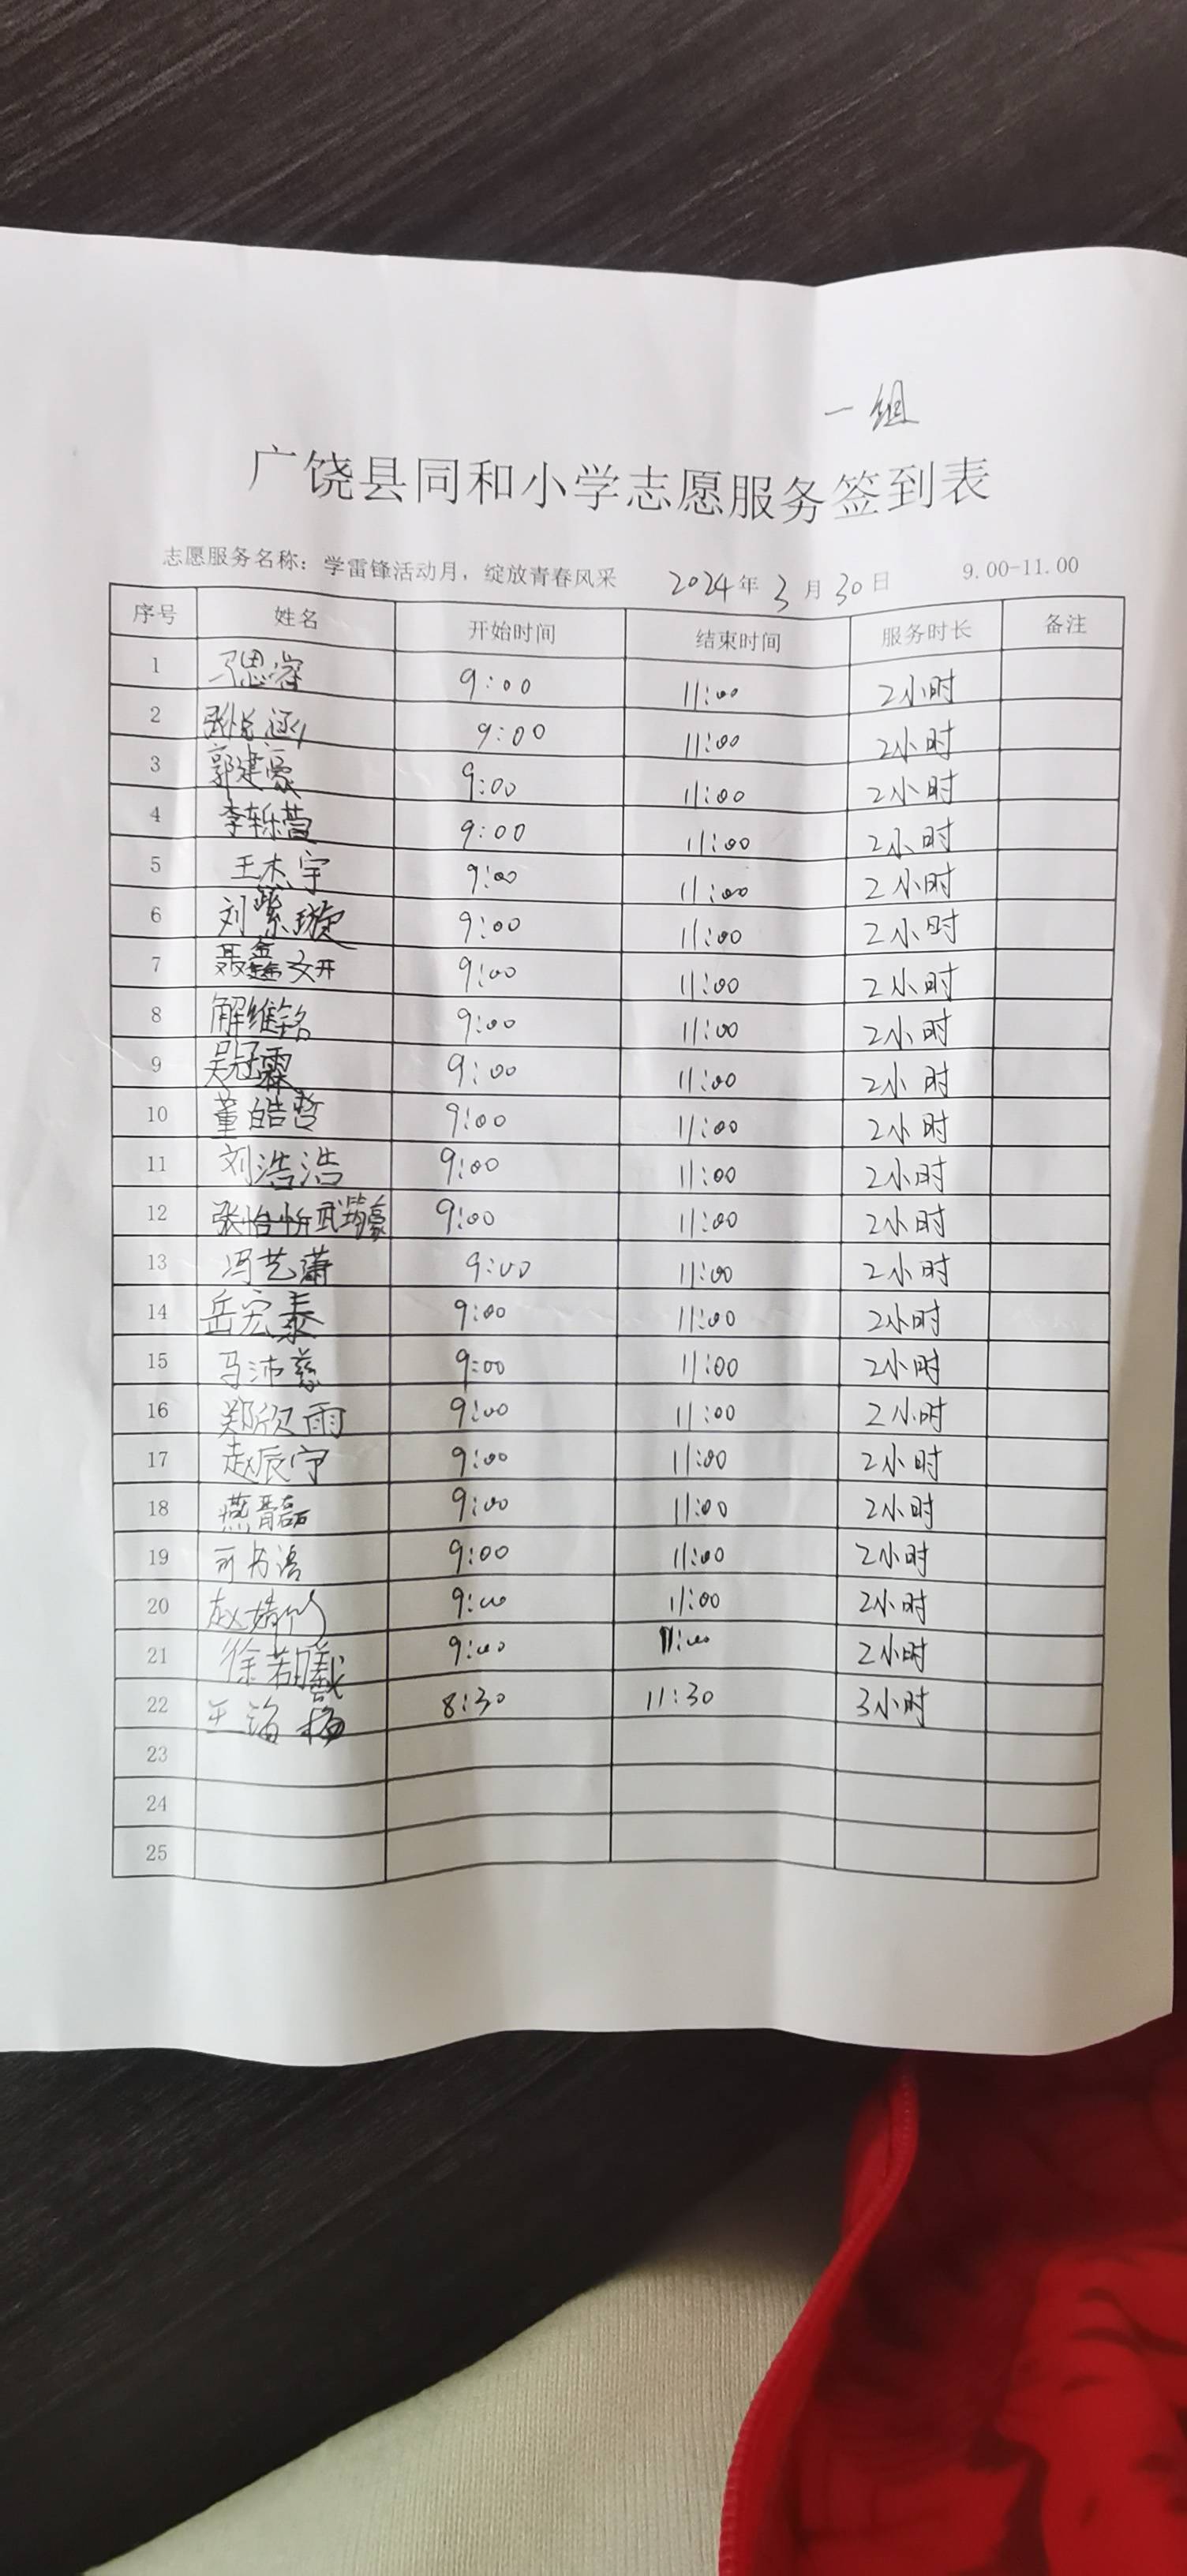 一组
广饶县同和小学志愿服务签到表
志愿服务名称：学雷锋活动月，绽放青春风采 2024年 3月 30日 9.00-11.00
序号 姓名 开始时间 结束时间 服务时长 备注
1 马思睿 9:00 11:00 2小时
2 张悦涵 9:00 11:00 2小时
3 郭建豪 9:00 11:00 2小时
4 李轹萱 9:00 11:00 2小时
5 王杰宇 9:00 11:00 2小时
6 刘紫璇 9:00 11:00 2小时
7 聂鑫妍 9:00 11:00 2小时
8 解维铭 9:00 11:00 2小时
9 吴冠霖 9:00 11:00 2小时
10 董皓哲 9:00 11:00 2小时
11 刘浩浩 9:00 11:00 2小时
12 张怡忻 武筠豪 9:00 11:00 2小时
13 冯艺潇 9:00 11:00 2小时
14 岳宏泰 9:00 11:00 2小时
15 马沛慈 9:00 11:00 2小时
16 郑欣雨 9:00 11:00 2小时
17 赵辰宁 9:00 11:00 2小时
18 9:00 11:00 2小时
19 9:00 11:00 2小时
20 9:00 11:00 2小时
21 徐若曦 9:00 11:00 2小时
22 8:30 11:30 3小时
23
24
25